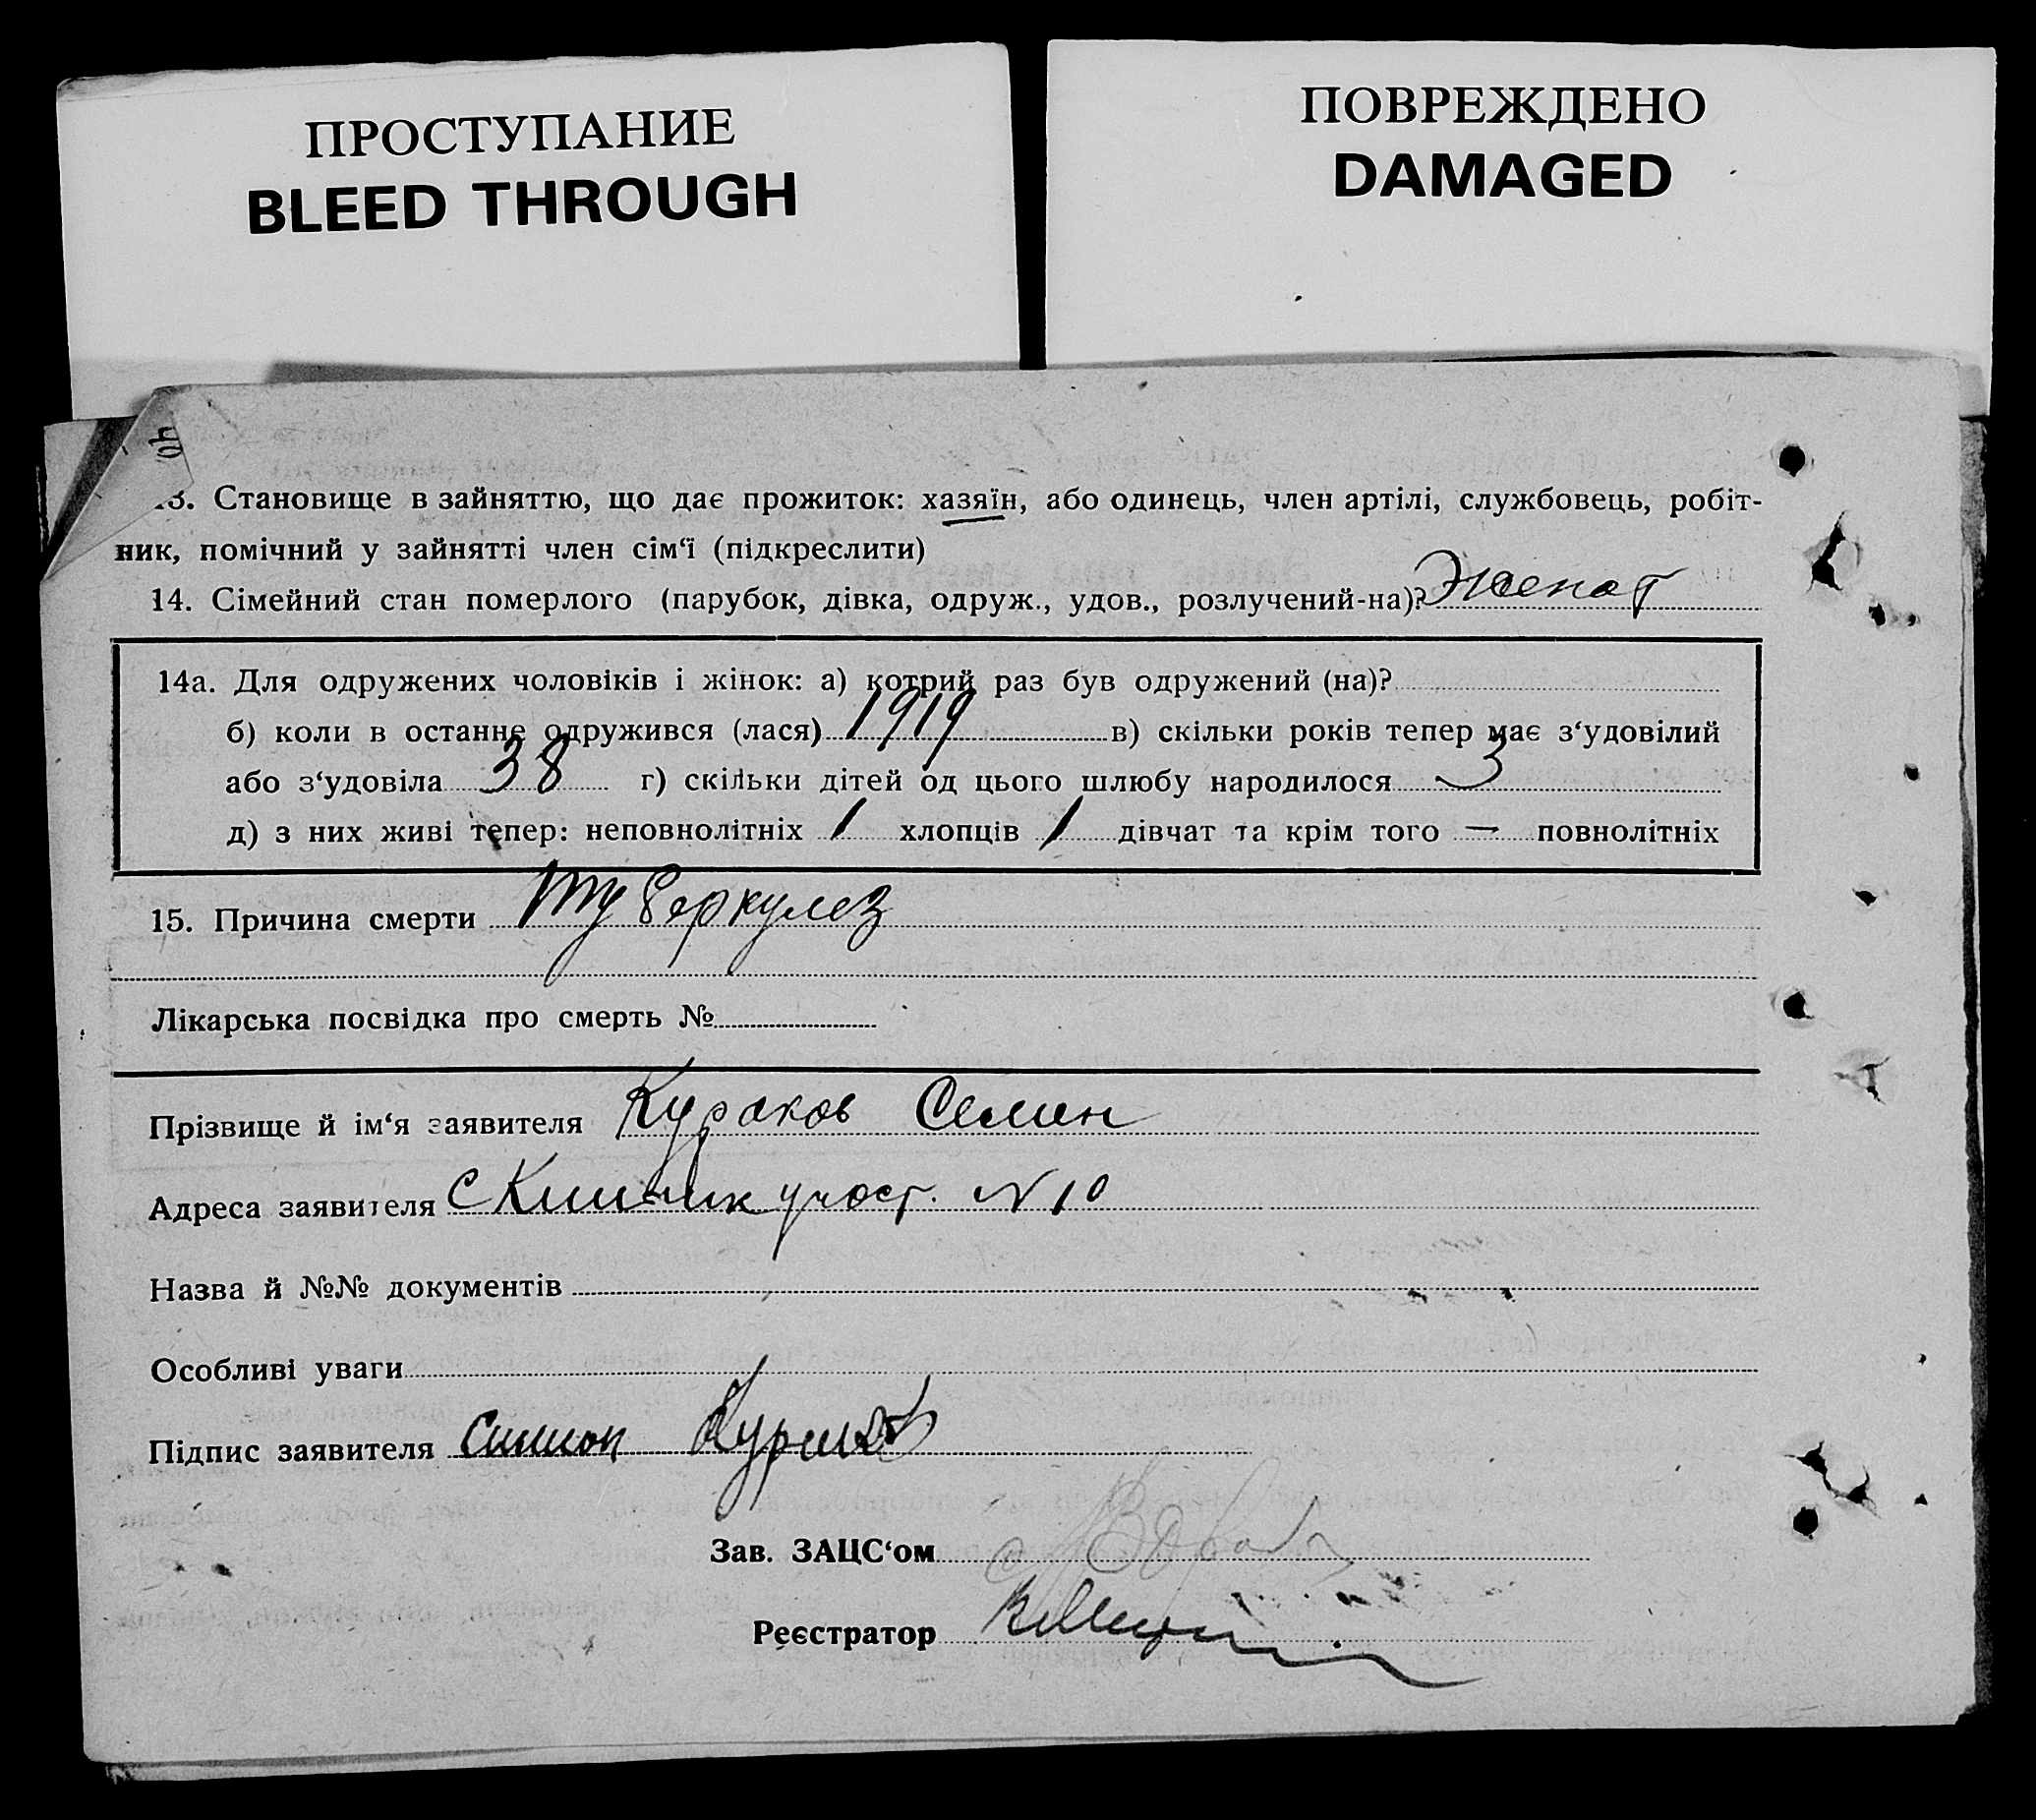 ПРОСТУПАНИЕ
BLEED THROUGH
ПОВРЕЖДЕНО
DAMAGED
13. Становище в зайняттю, що дає прожиток: хазяїн, або одинець, член артілі, службовець, робіт-
ник, помічний у зайнятті член сім‘ї (підкреслити)
14. Сімейний стан померлого (парубок, дівка, одруж., удов., розлучений-на)? Женат
14а. Для одружених чоловіків і жінок: а) котрий раз був одружений (на)?
б) коли в останнє одружився (лася) 1919 в) скільки років тепер має з‘удовілий
або з‘удовіла 38 г) скільки дітей од цього шлюбу народилося 3
д) з них живі тепер: неповнолітніх 1 хлопців 1 дівчат та крім того — повнолітніх
15. Причина смерти Туберкулез
Лікарська посвідка про смерть №
Прізвище й ім‘я заявителя Кураков Семен
Адреса заявителя с участ. N 10
Назва й №№ документів
Особливі уваги
Підпис заявителя
Зав. ЗАЦС‘ом
Реєстратор